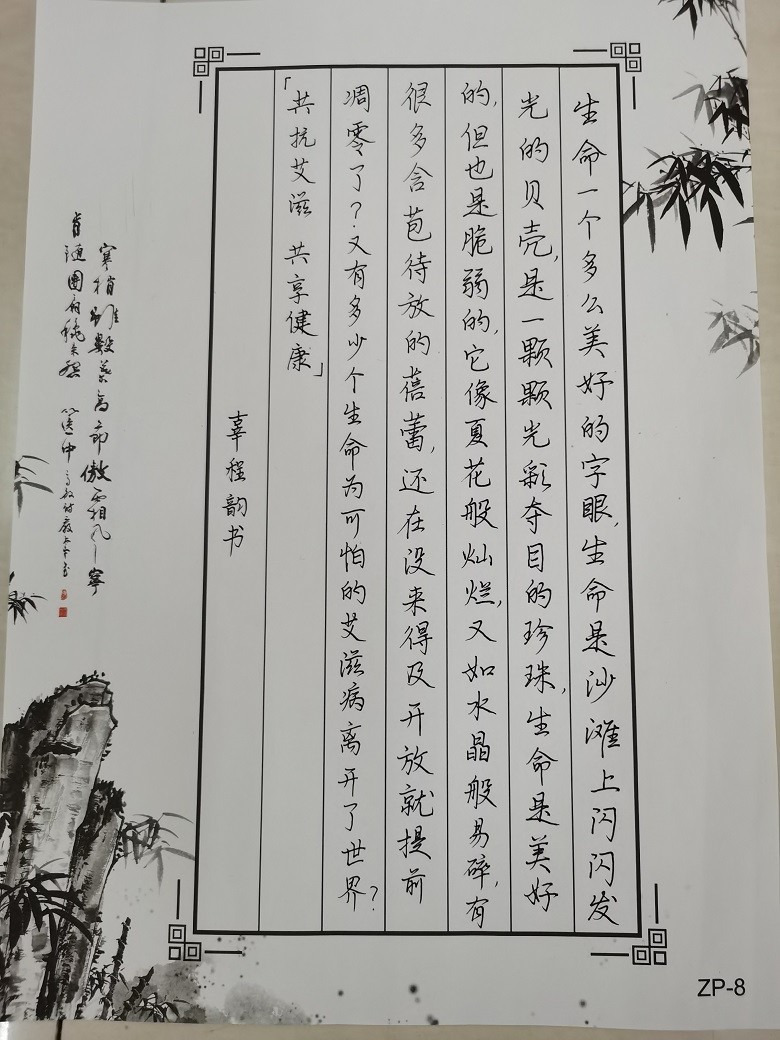 生命一个多么美好的字眼,生命是沙滩上闪闪发
光的贝壳,是一颗颗光彩夺目的珍珠,生命是美好
的,但也是脆弱的,它像夏花般灿烂,又如水晶般易碎,有
很多含苞待放的蓓蕾,还在没来得及开放就提前
凋零了?又有多少个生命为可怕的艾滋病离开了世界?
「共抗艾滋 共享健康」
辜程韵书
寒梢 数 高节傲霜风宁
肯随
ZP-8